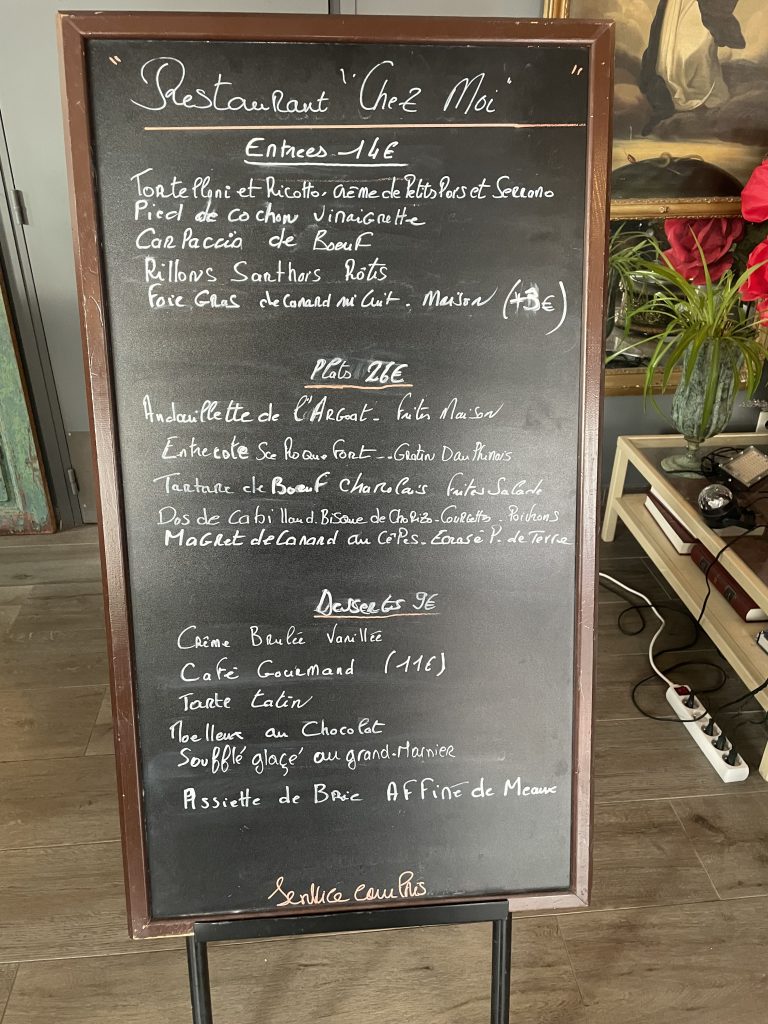 " Restaurant "Chez Moi" "
Entrees 14€
Tortelloni et Ricotta. Crème de Petits Pois et Serrano
Pied de cochon vinaigrette
Carpaccio de Boeuf
Rillons Santhors Rôtis
Foie Gras de Canard mi Cuit. Maison (+3€)
Plats 26€
Andouillette de l'Argoat - frites Maison
Entrecote Sce Roquefort - Gratin Dauphinois
Tartare de Boeuf Charolais frites Salade
Dos de Cabillaud. Bisque de Chorizo - Courgettes - Poivrons
Magret de Canard au Cèpes - Ecrasé P. de Terre
Desserts 9€
Crême Brulée Vanillée
Café Gourmand (11€)
Tarte tatin
Moelleux au Chocolat
Soufflé glaçé au grand-Marnier
Assiette de Brie Affiné de Meaux
Service compris